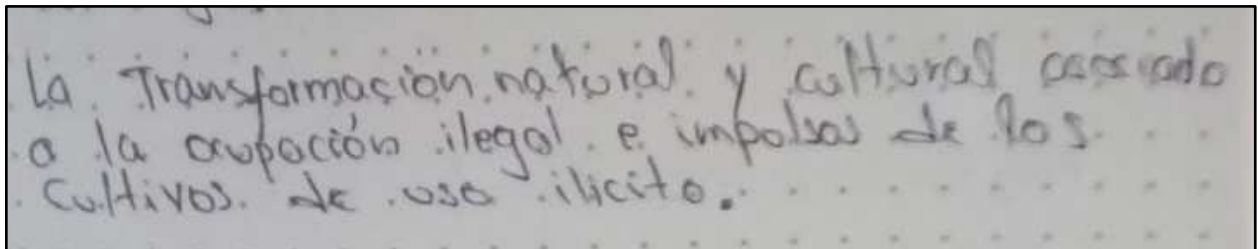 La Transformación natural y cultural asosiado
a la ocupación ilegal e impolsos de los
cultivos de uso ilicito.